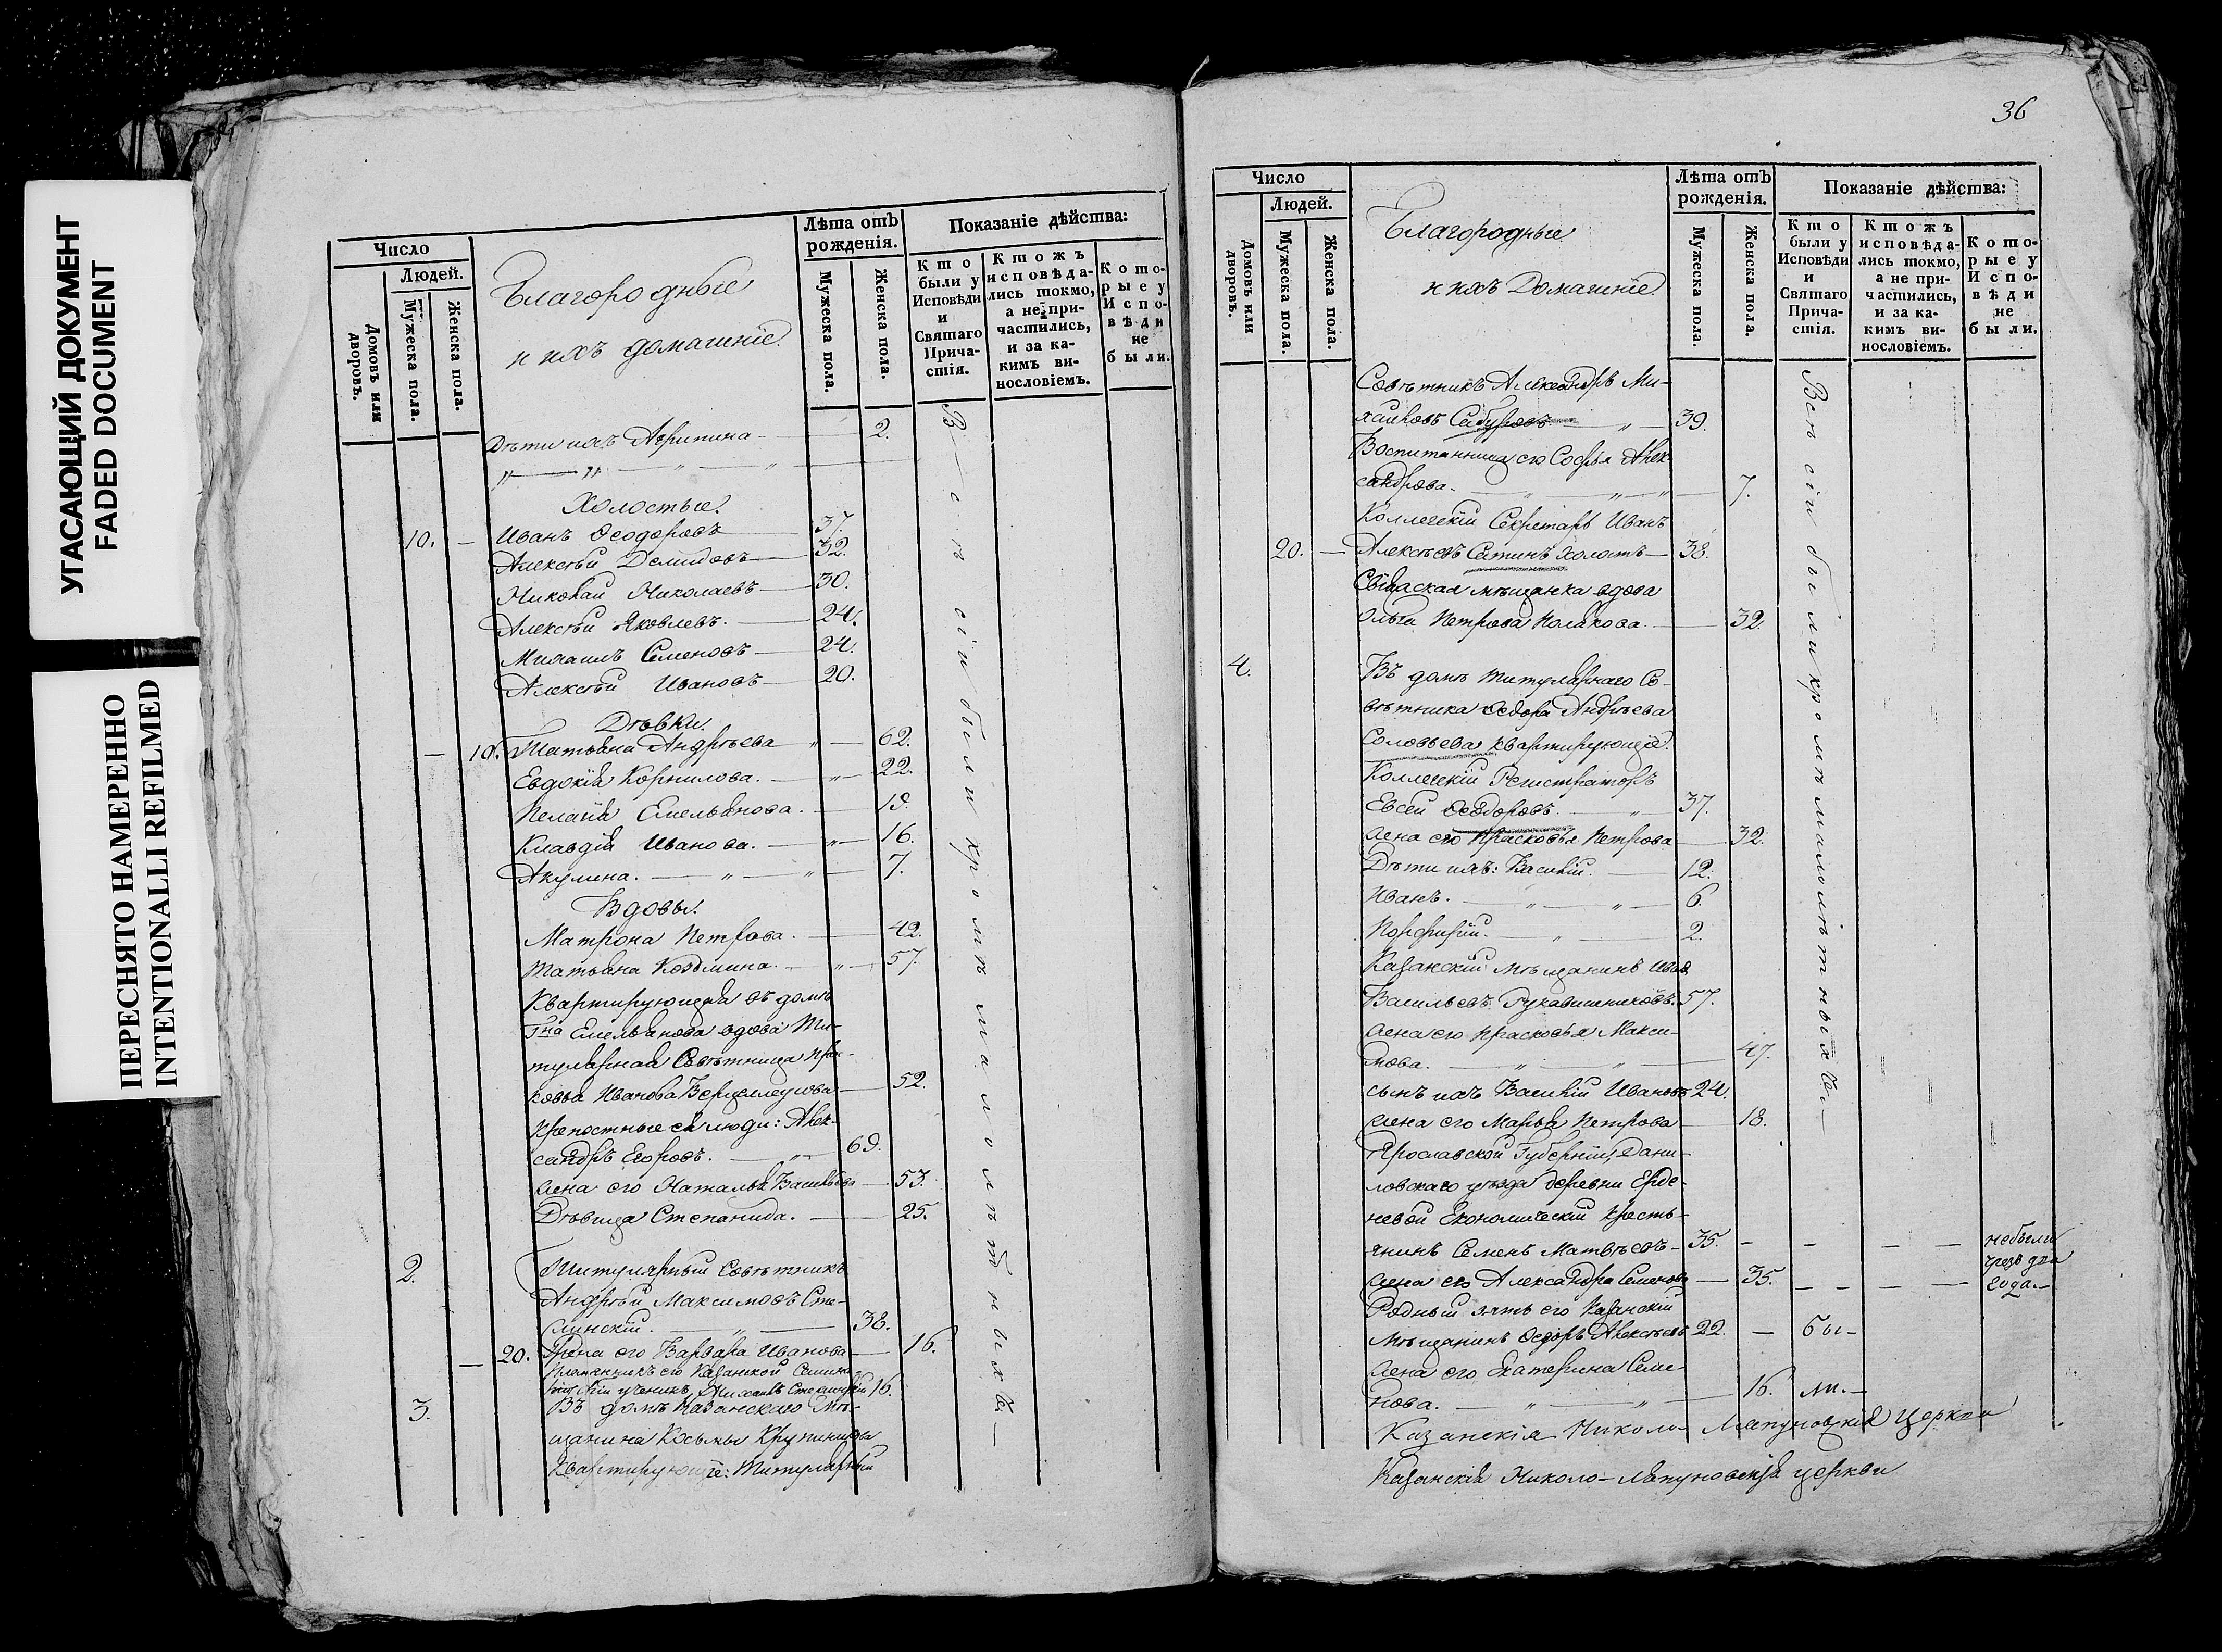 УГАСАЮЩИЙ ДОКУМЕНТ
FADED DOCUMENT
ПЕРЕСНЯТО НАМЕРЕННО
INTENTIONALLI REFILMED
Число
Людей.
Домовъ или дворовъ.
Мужеска пола.
Женска пола.
Благородные
и ихъ домашніе.
Лѣта отъ рожденія.
Мужеска пола.
Женска пола.
Показаніе дѣйства:
Кто были у Исповѣди и Святаго Прича-стія.
Ктожъ исповѣда-лись токмо, а не при-частились, и за ка-кимъ ви-нословіемъ.
Кото-рые у Испо-вѣди не были.
Дѣти ихъ Агрипина 2.
Холостые.
10. Иванъ Ѳеодоровъ 37.
Алексѣй Демидовъ 32.
Николай Николаевъ 30.
Алексѣй Яковлевъ. 24.
Михаилъ Семеновъ 24.
Алексѣй Ивановъ 20.
Дѣвки.
10. Татьяна Андрѣева 62.
Евдокія Корнилова. 22.
Пелагія Емельянова. 19.
Клавдія Иванова. 16.
Акулина. 7.
Вдовы.
Матрона Петрова. 42.
Татьяна Козьмина. 57.
Квартирующая въ домѣ
Гна Емельянова вдова Ти-
тулярная Совѣтница
Иванова 52.
Крепостные ея люди: Алек-
сандръ Егоровъ. 69.
Жена его Наталья Васильева 53.
Дѣвица Степанида. 25.
2. Титулярный Совѣтникъ
Андрѣй Максимовъ Сте-
линскій. 38.
20. Жена его Варвара Иванова 16.
Племянникъ его Казанской
ученикъ 16.
3. Въ домѣ Казанскаго Мѣ-
щанина Косьмы Крупеникова
Квартирующіе: Титулярный
Всѣ сіи были кромѣ малолѣтныхъ
36
Число
Людей.
Домовъ или дворовъ.
Мужеска пола.
Женска пола.
Благородные
и ихъ Домашніе.
Лѣта отъ рожденія.
Мужеска пола.
Женска пола.
Показаніе дѣйства:
Кто были у Исповѣди и Святаго Прича-стія.
Ктожъ исповѣда-лись токмо, а не при-частились, и за ка-кимъ ви-нословіемъ.
Кото-рые у Испо-вѣди не были.
Совѣтникъ Александръ Ми-
хайловъ Сабуровъ 39.
Воспитанница его Софья Алек-
сандрова. 7.
Коллегскій Секретарь Иванъ
20. Алексѣевъ Сатинъ холостъ 38.
мѣщанка вдова
Ольга Петрова Полякова. 32.
4. Въ домѣ Титулярнаго Со-
вѣтника Ѳедора Андрѣева
Соловьева квартирующіе.
Коллегскій Регистраторъ
Евсей Ѳеодоровъ. 37.
Жена его Прасковья Петрова 32.
Дѣти ихъ: Василій. 12.
Иванъ. 6.
Порфирій. 2.
Казанскій мѣщанинъ Иванъ
Васильевъ Рукавишниковъ. 57.
Жена его Прасковья Макси-
мова. 47.
сынъ ихъ Василій Ивановъ 24.
Жена его Марья Петрова 18.
Ярославской Губерніи, Дани-
ловскаго уѣзда деревни Ерде-
невой Економическій кресть-
янинъ Семенъ Матвѣевъ 35.
Жена его Александра Семенова 35.
небыли
чрезъ два
года.
Родный зять его Казанскій
Мѣщанинъ Ѳедоръ Алексѣевъ 22. — бы-
Жена его Екатерина Семе-
нова. 16. ли.
Всѣ сіи были кромѣ малолѣтныхъ
Казанскія Николо Ляпуновскія Церкви
Казанскія Николо-Ляпуновскія церкви